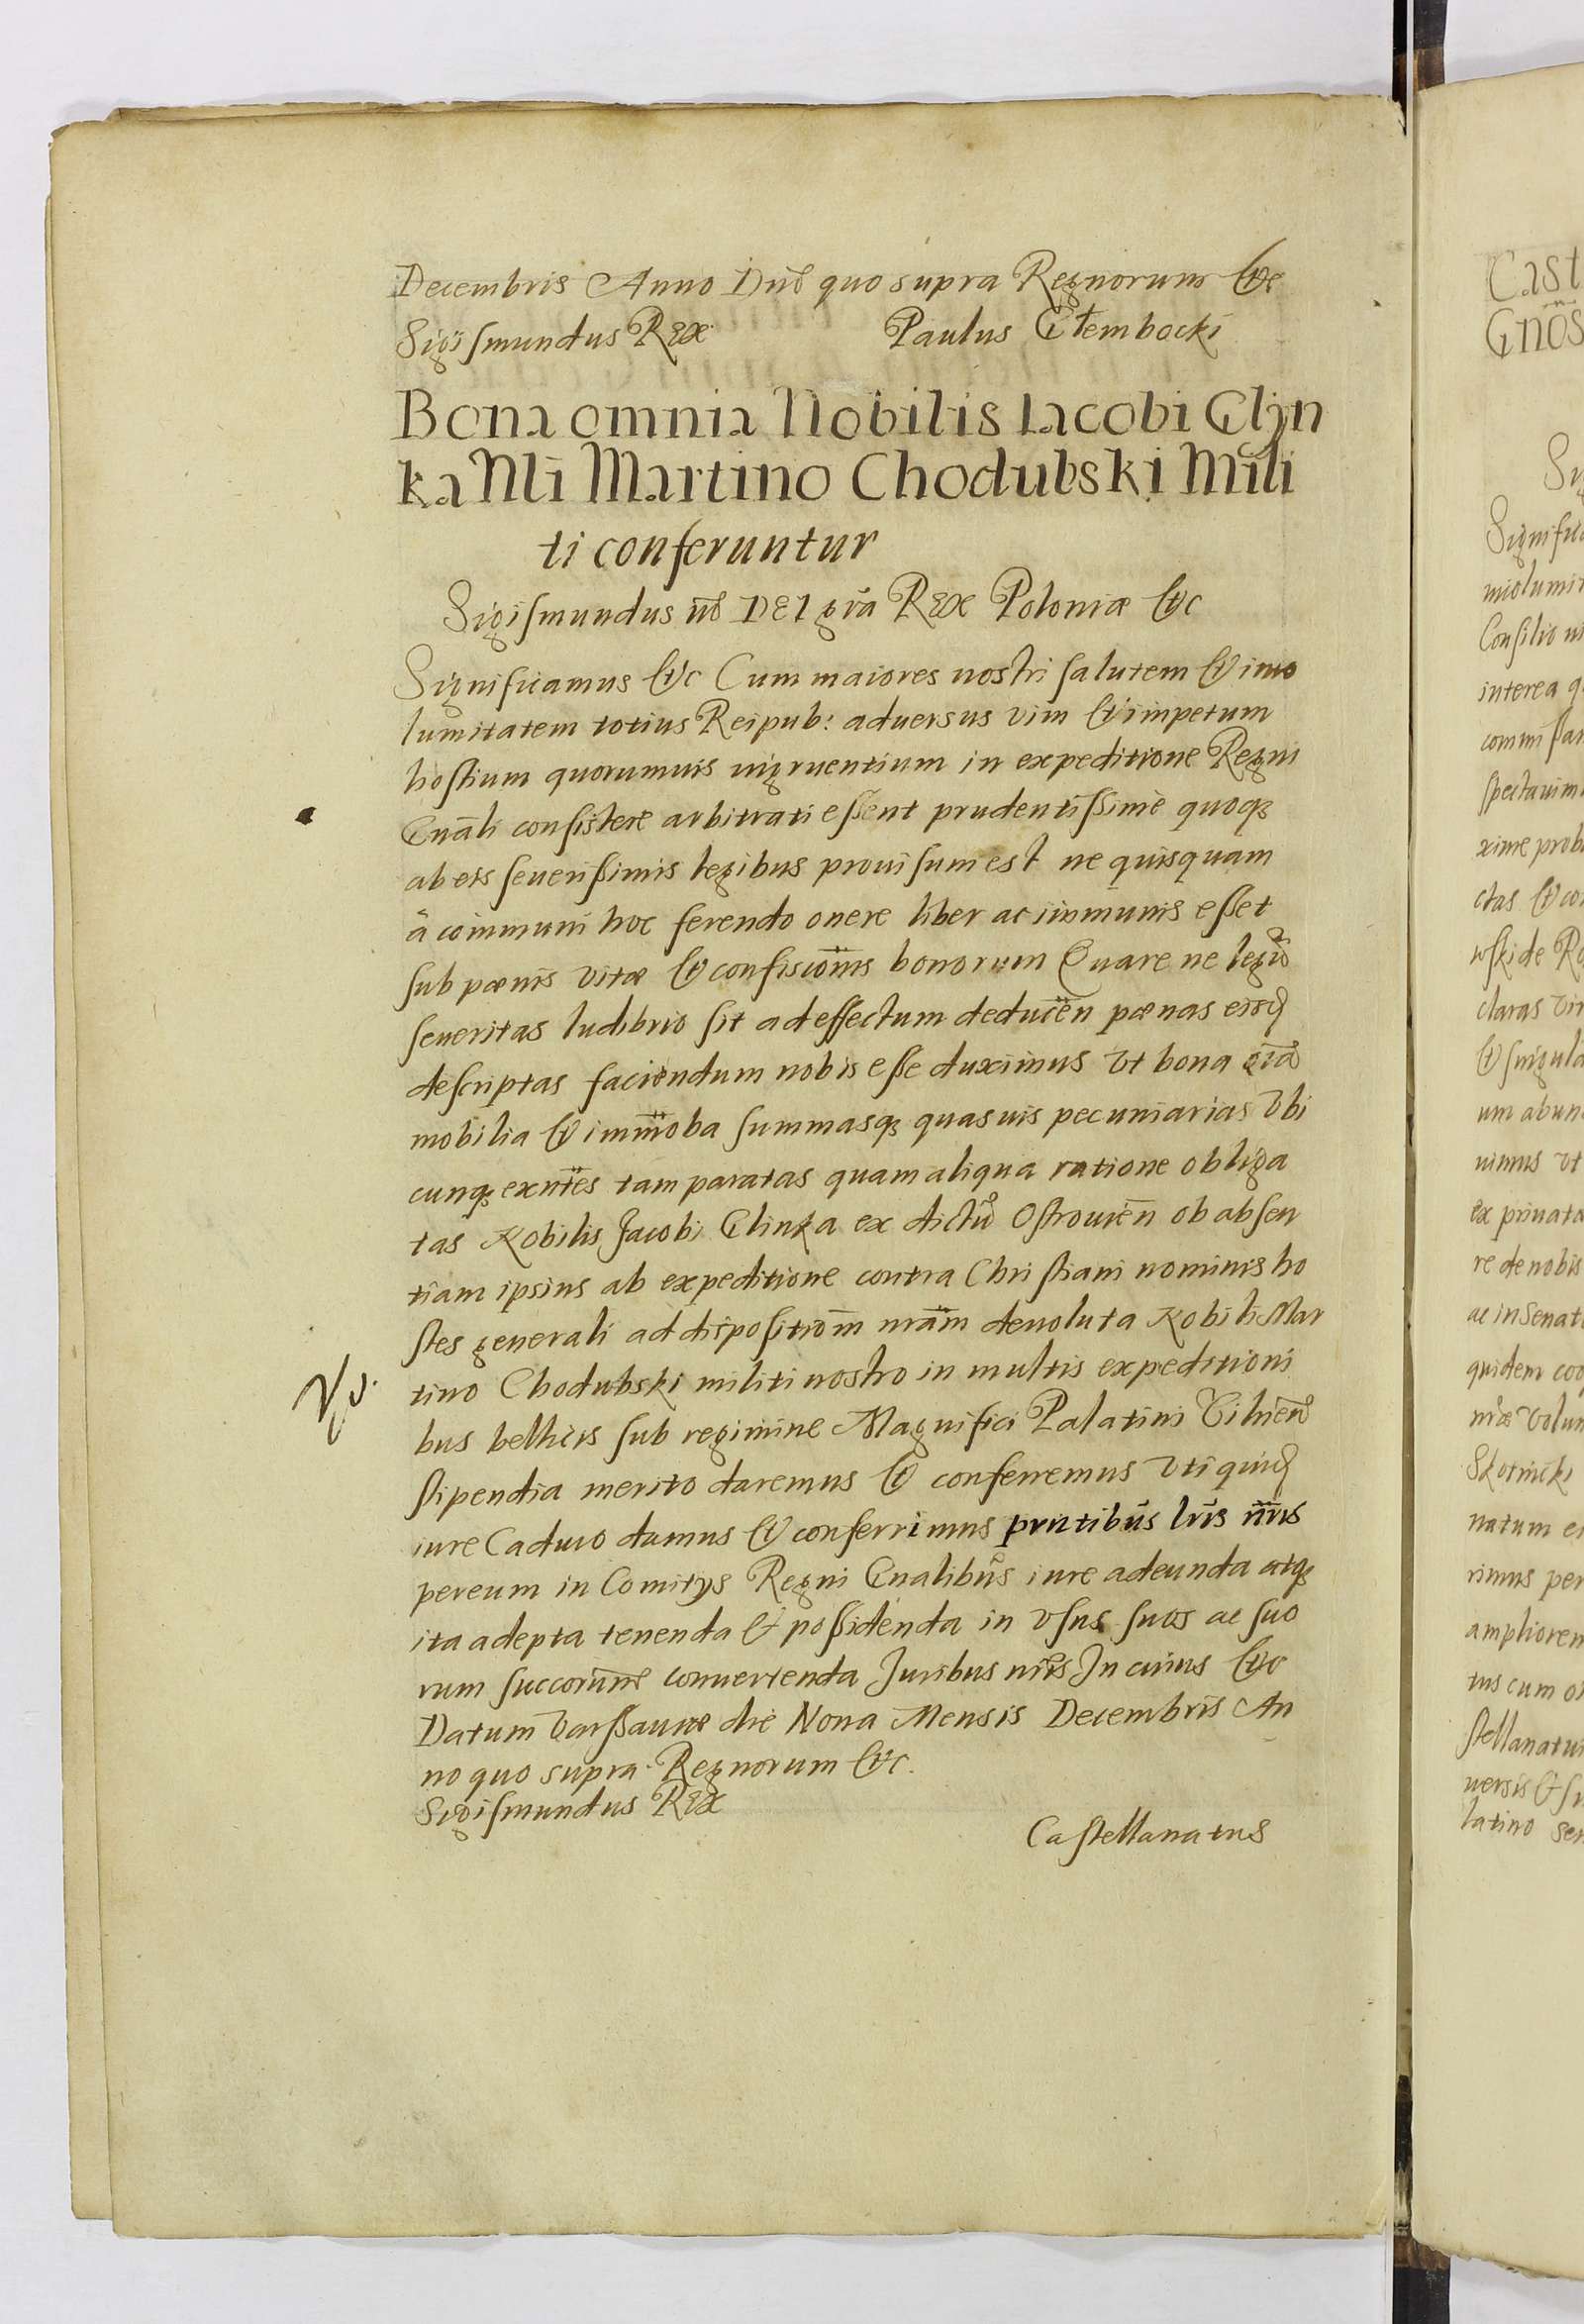 Decembris Anno Dnō quo supra Regnorum &c
Sigismundus Rex Paulus Glembocki
Bona omnia Nobilis Iacobi Glyn
ka Nli Martino Chodubski Mili
ti conferuntur
Sigismundus DEI gra͞ Rex Poloniæ &c
Significamus &c Cum maiores nostri salutem & inco
lumitatem totius Reipub: aduersus vim & impetum
hostium quorumuis ingruentium in expeditione Regni
Gnāli consistere arbitrati essent prudentissime quoqꝫ
ab eis seuerissimis legibus prouisum est ne quisquam
à communi hoc ferendo onere liber ac immunis esset
sub pœnis vitæ & confiscōnis bonorum Quare ne legū
seueritas ludibrio sit ad effectum deducen̄ pœnas eisđ
descriptas faciendum nobis esse duximus vt bona oīa
mobilia & immoba summasqꝫ quasuis pecuniarias vbi
cunqꝫ exn̄tes tam paratas quam aliqua ratione obliga
tas Nobilis Jacobi Glinka ex dictū Ostrouien̄ ob absen
tiam ipsius ab expeditione contra Christiani nominis ho
stes generali ad dispositiom̄ nrām deuoluta Nobili Mar
tino Chodubski militi nostro in multis expeditioni
bus bellicis sub regimine Magnifici Palatini Vilnen̄
stipendia merito daremus & conferremus vti quidꝫ
iure Caduco damus & conferrimus prn̄tibus lr̄is nr̄is
per eum in Comitys Regni Gnalibus iure adeunda atqꝫ
ita adepta tenenda & possidenda in vsus suos ac suo
rum succorum̄ conuertenda Juribus nris In cuius &c
Datum Varssauiæ die Nona Mensis Decembris An
no quo supra Regnorum &c.
Sigismundus Rex
Castellanatus
Cast
Gnōs
Signific
miolumit
Consilio
interea q
commissar
spectauim
xime prob
ctas & co
wski de Ro
claras vir
& singula
um abun
uimus vt
ex priuata
re de nobis
ac in Senat
quidem coo
Skotnicki
natum
rimus per
ampliorem
tus cum
stellanatu
uersis & s
latino